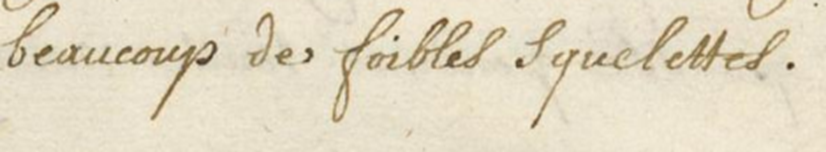 beaucoup des foibles squelettes.